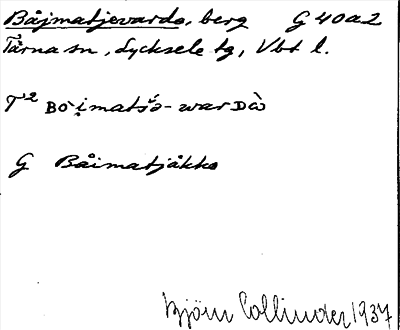 Båjmatjevardo, berg G 40a2
Tärna sn, Lycksele lg, Vbt l.
T² BO i̯matšə-warDò
G Båimatjåkko
Björn Collinder 1937